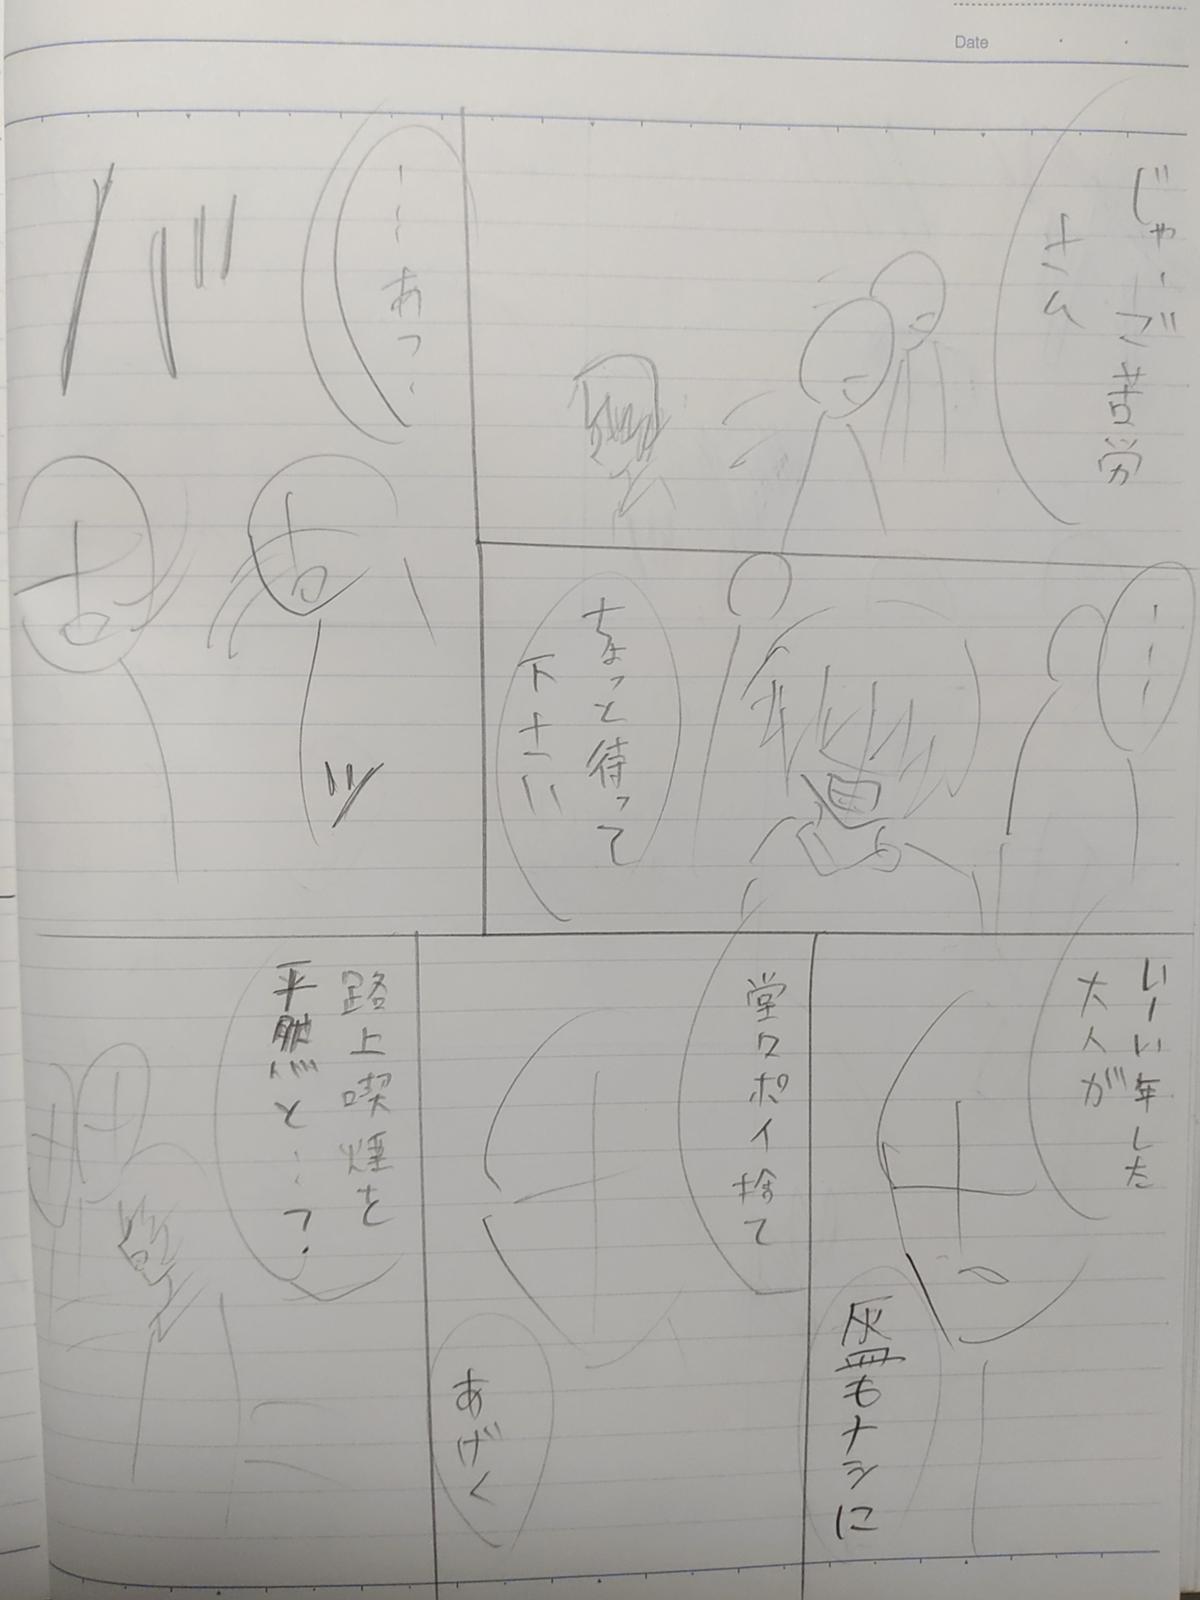 Date
じゃ、ご苦労
さん
ーーー
ちょっと待って
下さい
ーーあっ、
バ
ッ
いーい年した
大人が
灰皿もナシに
堂々ポイ捨て
あげく
路上喫煙を
平然と…？